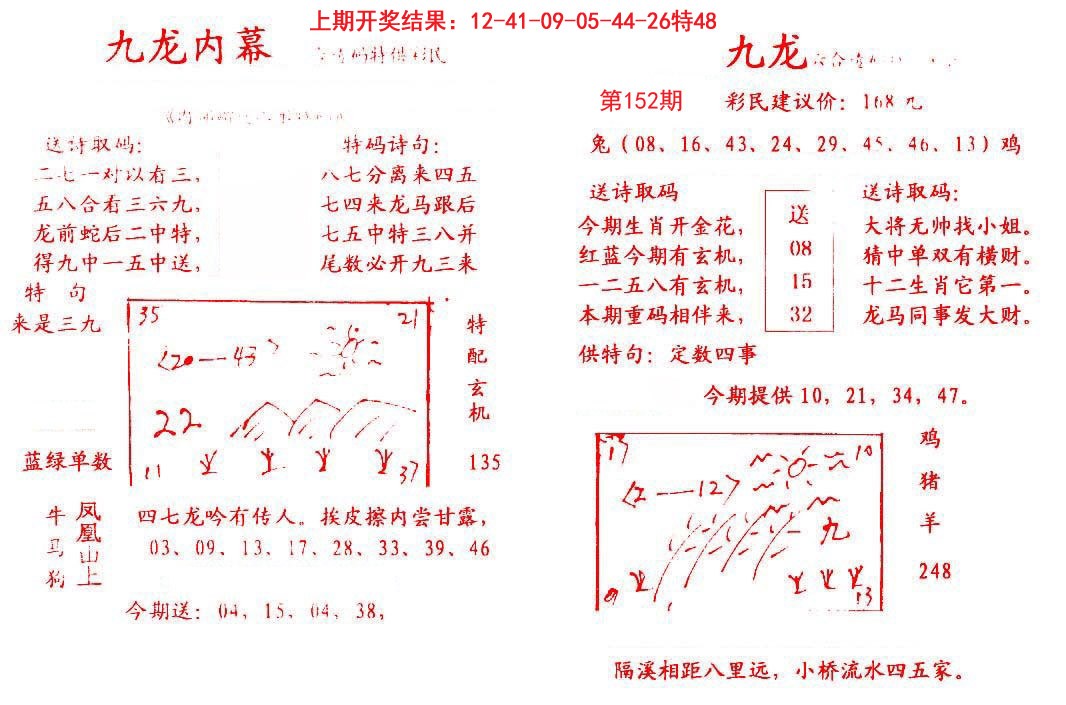 上期开奖结果：12-41-09-05-44-26特48
九龙内幕
送诗取码：
二七一对以看三，
五八合看三六九，
龙前蛇后二中特，
得九中一五中送，
特码诗句：
八七分离来四五
七四来龙马跟后
七五中特三八并
尾数必开九三来
特 句
来是三九
35
21
<20—43>
22
11
37
特配玄机
135
蓝绿单数
牛马狗
凤凰山上
四七龙吟有传人。挨皮擦内尝甘露，
03、09、13、17、28、33、39、46
今期送：04，15，04，38，
九龙
第152期
彩民建议价：168元
兔（08、16、43、24、29、45、46、13）鸡
送诗取码
今期生肖开金花，
红蓝今期有玄机，
一二五八有玄机，
本期重码相伴来，
送
08
15
32
送诗取码：
大将无帅找小姐。
猜中单双有横财。
十二生肖它第一。
龙马同事发大财。
供特句：定数四事
今期提供10，21，34，47。
10
<2—12>
九
13
鸡
猪
羊
248
隔溪相距八里远，小桥流水四五家。